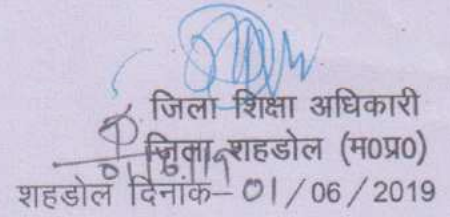 जिला शिक्षा अधिकारी
जिला शहडोल (म0प्र0)
शहडोल दिनांक– 01 / 06 / 2019